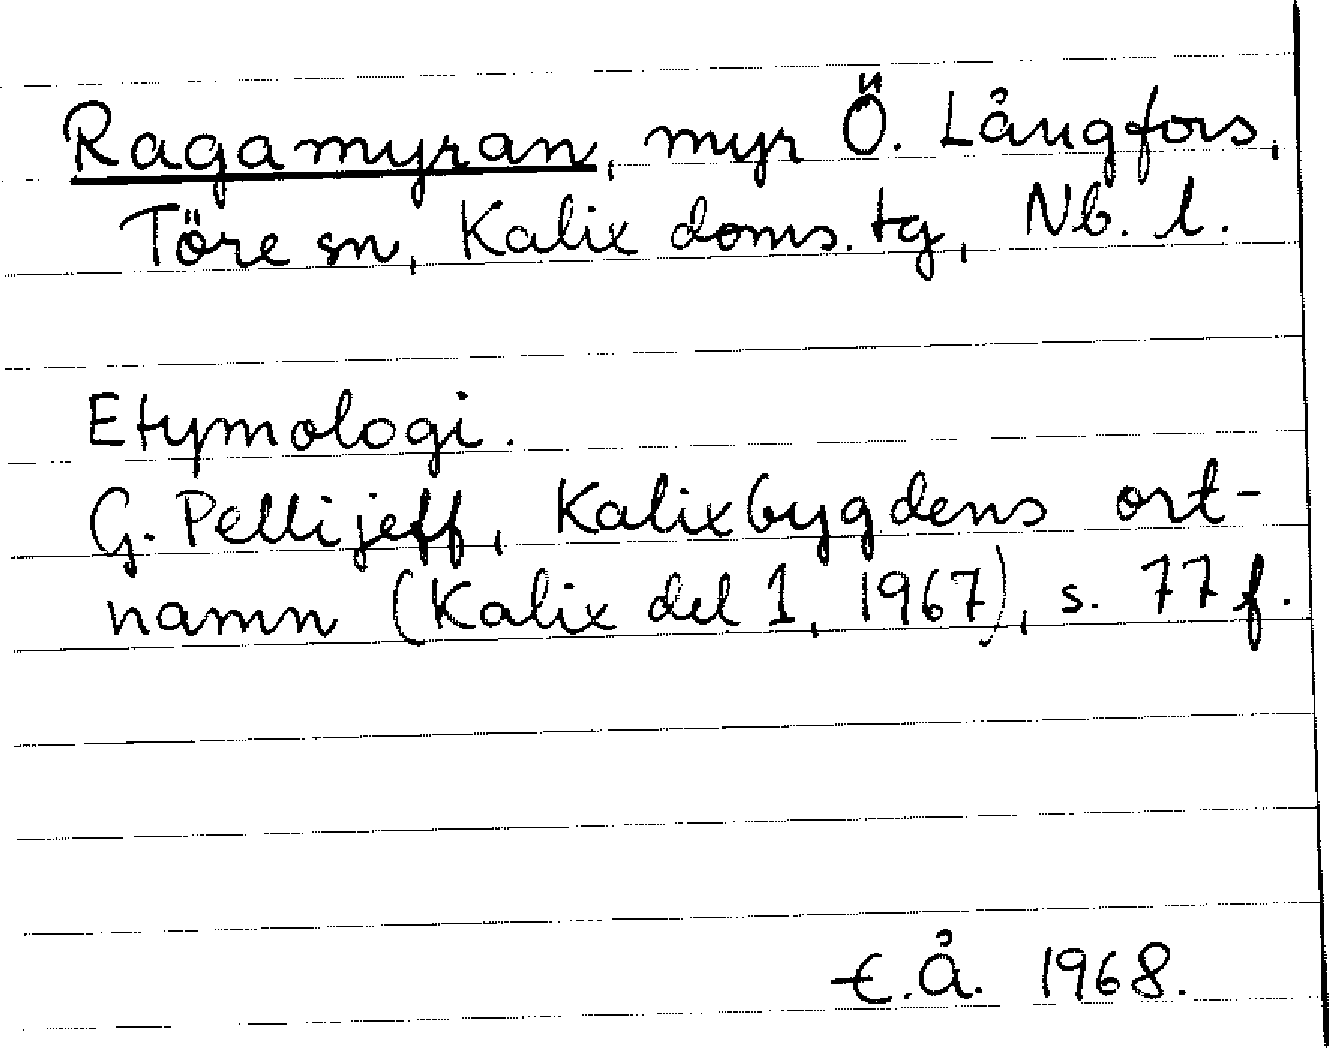 Ragamyran, myr Ö. Långfors,
Töre sn, Kalix doms. tg, Nb. l.
Etymologi.
G. Pellijeff, Kalixbygdens ort-
namn (Kalix del 1, 1967), s. 77 f.
E.Å. 1968.